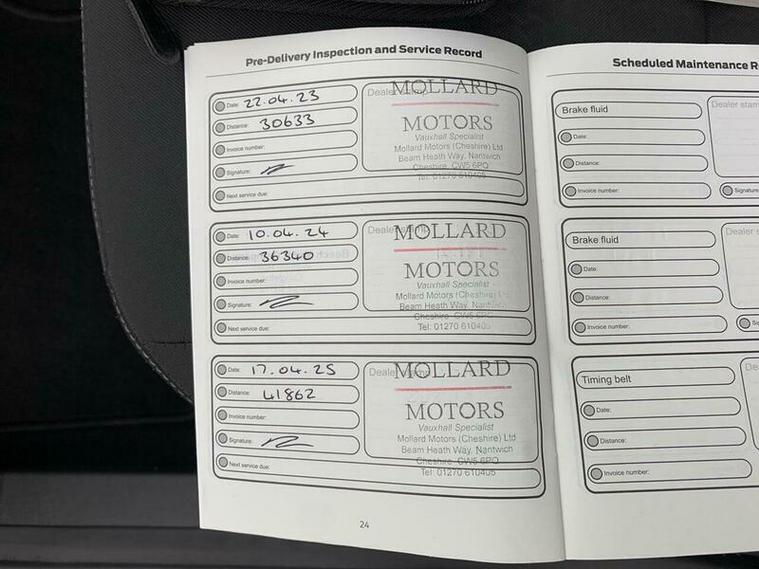 Pre-Delivery Inspection and Service Record
Date: 22.04.23
Distance: 30633
Invoice number:
Signature:
Next service due:
Dealer stamp
MOLLARD
MOTORS
Vauxhall Specialist
Mollard Motors (Cheshire) Ltd
Beam Heath Way, Nantwich
Cheshire CW5 6PQ
Tel: 01270 610405
Date: 10.04.24
Distance: 36340
Invoice number:
Signature:
Next service due:
Dealer stamp
MOLLARD
MOTORS
Vauxhall Specialist
Mollard Motors (Cheshire) Ltd
Beam Heath Way, Nantwich
Cheshire CW5 6PQ
Tel: 01270 610405
Date: 17.04.25
Distance: 41862
Invoice number:
Signature:
Next service due:
Dealer stamp
MOLLARD
MOTORS
Vauxhall Specialist
Mollard Motors (Cheshire) Ltd
Beam Heath Way, Nantwich
Cheshire CW5 6PQ
Tel: 01270 610405
24
Scheduled Maintenance R
Brake fluid
Date:
Distance:
Invoice number:
Dealer stam
Signature
Brake fluid
Date:
Distance:
Invoice number:
Dealer s
Si
Timing belt
Date:
Distance:
Invoice number:
De